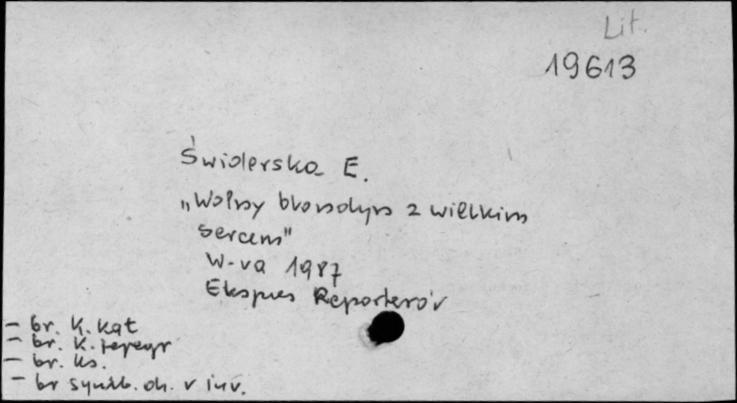 Lit.
19613
Świderska E.
„Wolny blondyn z wielkim
sercem"
W-va 1987
Ekspres Reporterów
- br. k. kat
- br. k.
- br. ks.
- br symb. v inv.